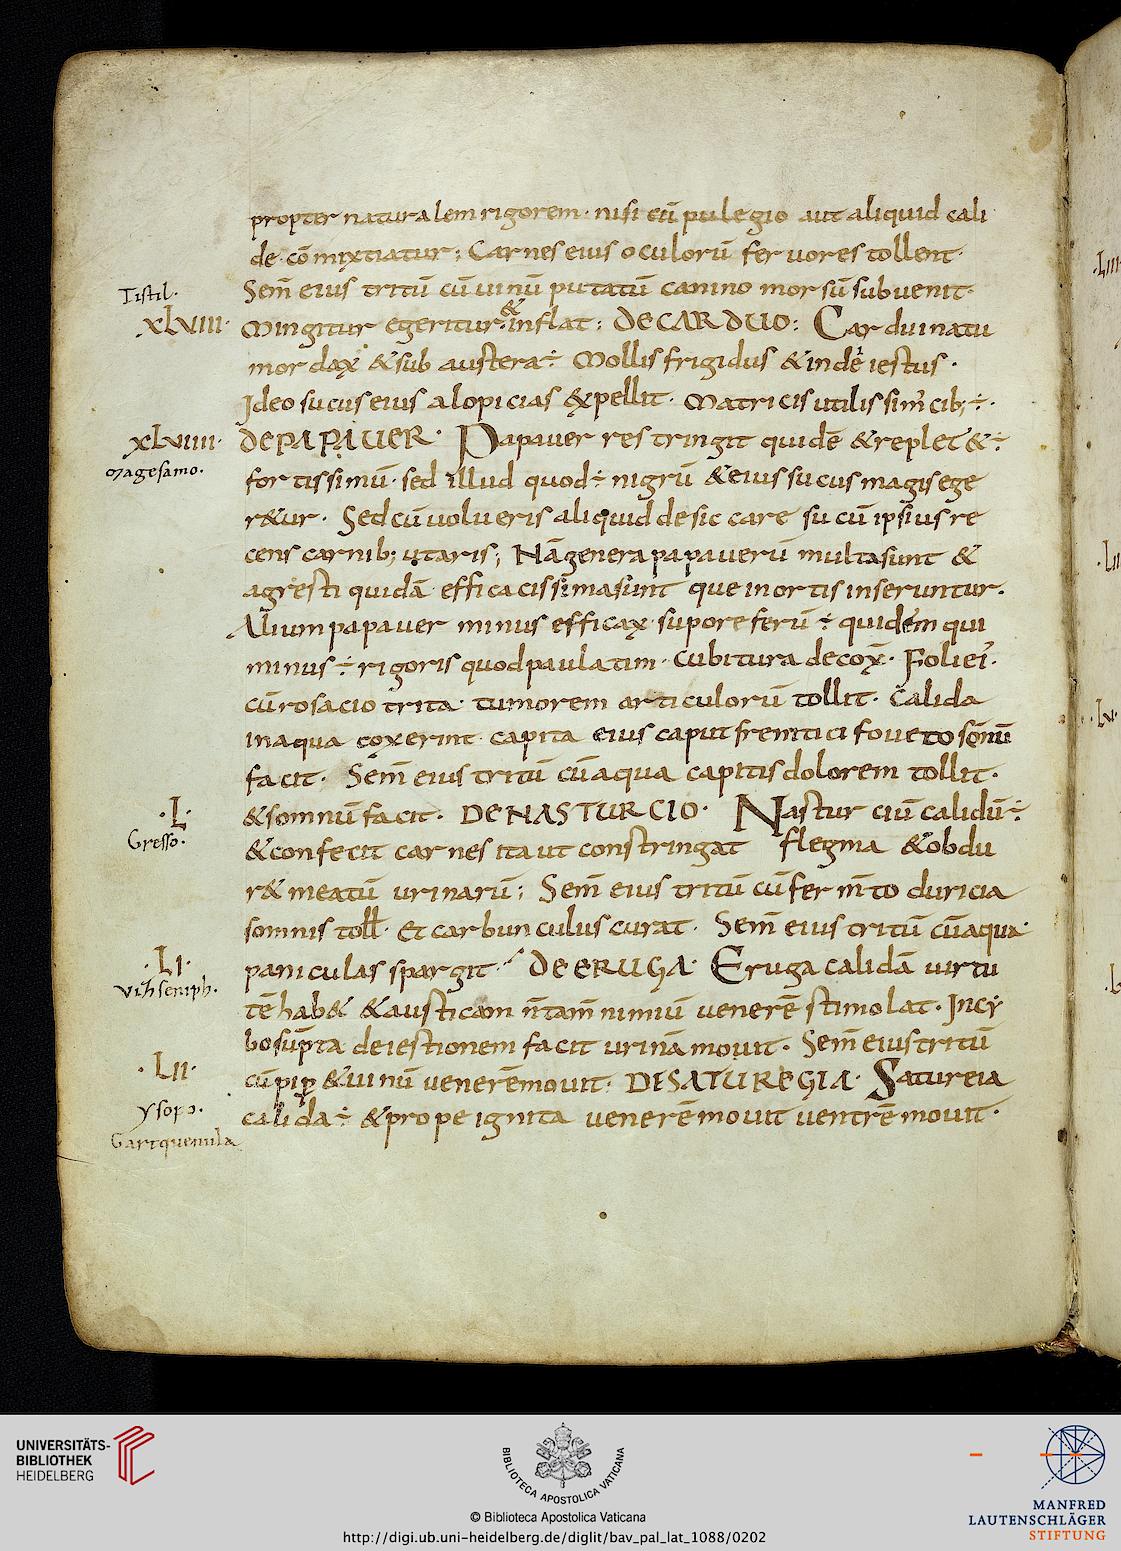 propter naturalem rigorem · nisi cū pulegio aut aliquid cali
de · cōmixtiatur ; Carnes eius oculorū fervores tollent ·
Tistil ·
Sem̄ eius tritū cū uinū putatū canino morsū subuenit ·
xLviii · Mingitur egeritur · & inflat ; DE CARDUO : Cardui natu
mordax & sub austera ÷ Mollis frigidus & inde iestus ·
Ideo sucus eius alopicias expellit · Matricis utilissim̄ cib; ÷ ·
xLviiii · DE PAPAUER · Papauer restringit quidē & replet & ÷
magesamo ·
fortissimū · sed illud quod ÷ nigrū & eius sucus magis ege
r&ur · Sed cū uolueris aliquid desiccare sucū ipsius re
cens carnib; utaris ; Nā genera papauerū multa sunt &
agresti quidā efficacissima sunt que in ortis inseruntur ·
Alium papauer minus efficax soporeferū ÷ quidem qui
minus ÷ rigoris quod paulatim · cubitura decox · Folie ·
cū rosacio trita · tumorem articulorū tollit · Calida
in aqua coxerint capita eius caput frenitici foueto somnū
facit · Sem̄ eius tritū cū aqua capitis dolorem tollit ·
· L · & somnū facit · DE NASTURCIO · Nasturciū calidū ÷
Gresso ·
& confecit carnes ita ut constringat flegma & obdu
r& meatū urinarū ; Sem̄ eius tritū cū fermto duricia
somnis toll · Et carbunculus curat · Sem̄ eius tritū cū aqua
· LI · paniculas spargit · DE ERUGA · Eruga calidā uirtu
tē hab& & austicam n̄ tam̄ nimiū uenerē stimolat · In cy
bo sūpta deiestionem facit urinā mouit · Sem̄ eius tritū
· LII · cū pip & uinū uenerē mouit · DE SATUREGIA · Satureia
ysopo ·
calida ÷ & prope ignita uenerē mouit uentrē mouit ·
Gartquenula
UNIVERSITÄTS-
BIBLIOTHEK
HEIDELBERG
BIBLIOTECA APOSTOLICA VATICANA
© Biblioteca Apostolica Vaticana
http://digi.ub.uni-heidelberg.de/diglit/bav_pal_lat_1088/0202
MANFRED
LAUTENSCHLÄGER
STIFTUNG